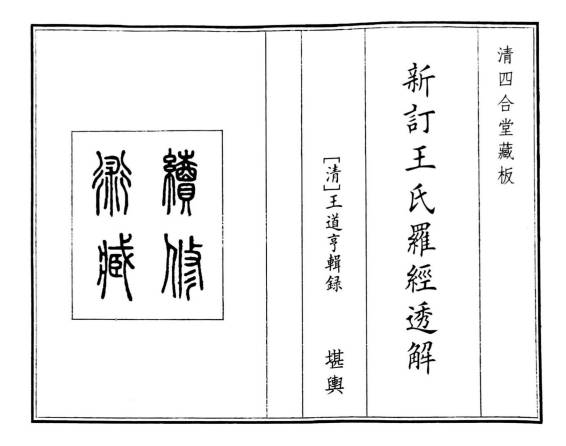 清四合堂藏板
新訂王氏羅經透解
［清］王道亨輯録
堪輿
續修
術藏